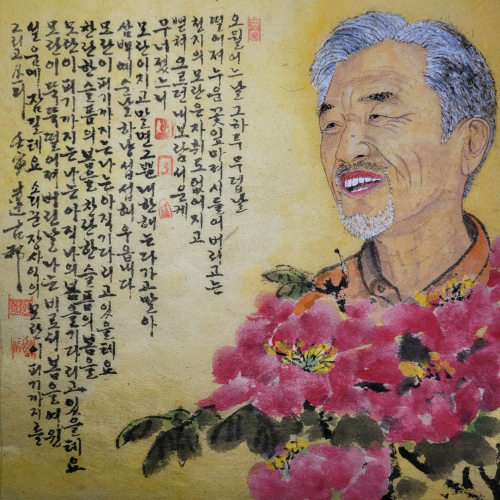 오월어느날 그하루 무덥날
떨어져 누운 꽃잎마져 시들어버리고는
천지의 모란은 자취도 없어지고
뻗쳐 오르던 내보람 서운케
무너졌느니
모란이지고말면 그뿐 내한해는 다가고말아
삼백예순날 하냥섭섭해 우옵내다
모란이피기까지는나는아직기다리고있을테요
찬란한슬픔의봄을 찬란한슬픔의봄을
모란이피기까지는나는아직나의봄을기다리고있을테요
모란이뚝뚝떨어져버린날나는비로서봄을여읜
설움에 잠길테요 소리꾼장사익의모란이피기까지를
그리고 壬寅